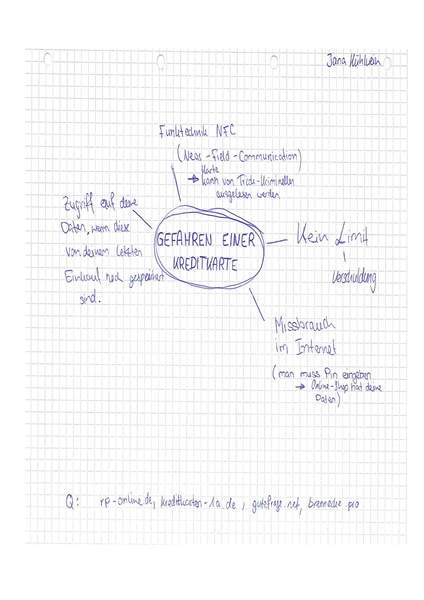 Jana Kühlwein
Funktechnik NFC
(Near-Field-Communication)
Karte
→ kann von Trick-Kriminellen
ausgelesen werden
Zugriff auf deine
Daten, wenn diese
von deinem letzten
Einkauf noch gespeichert
sind.
GEFAHREN EINER
KREDITKARTE
Kein Limit
Verschuldung
Missbrauch
im Internet
(man muss Pin eingeben
→ Online-Shop hat deine
Daten)
Q: rp-online.de, kreditkarten-1a.de, gutefrage.net,